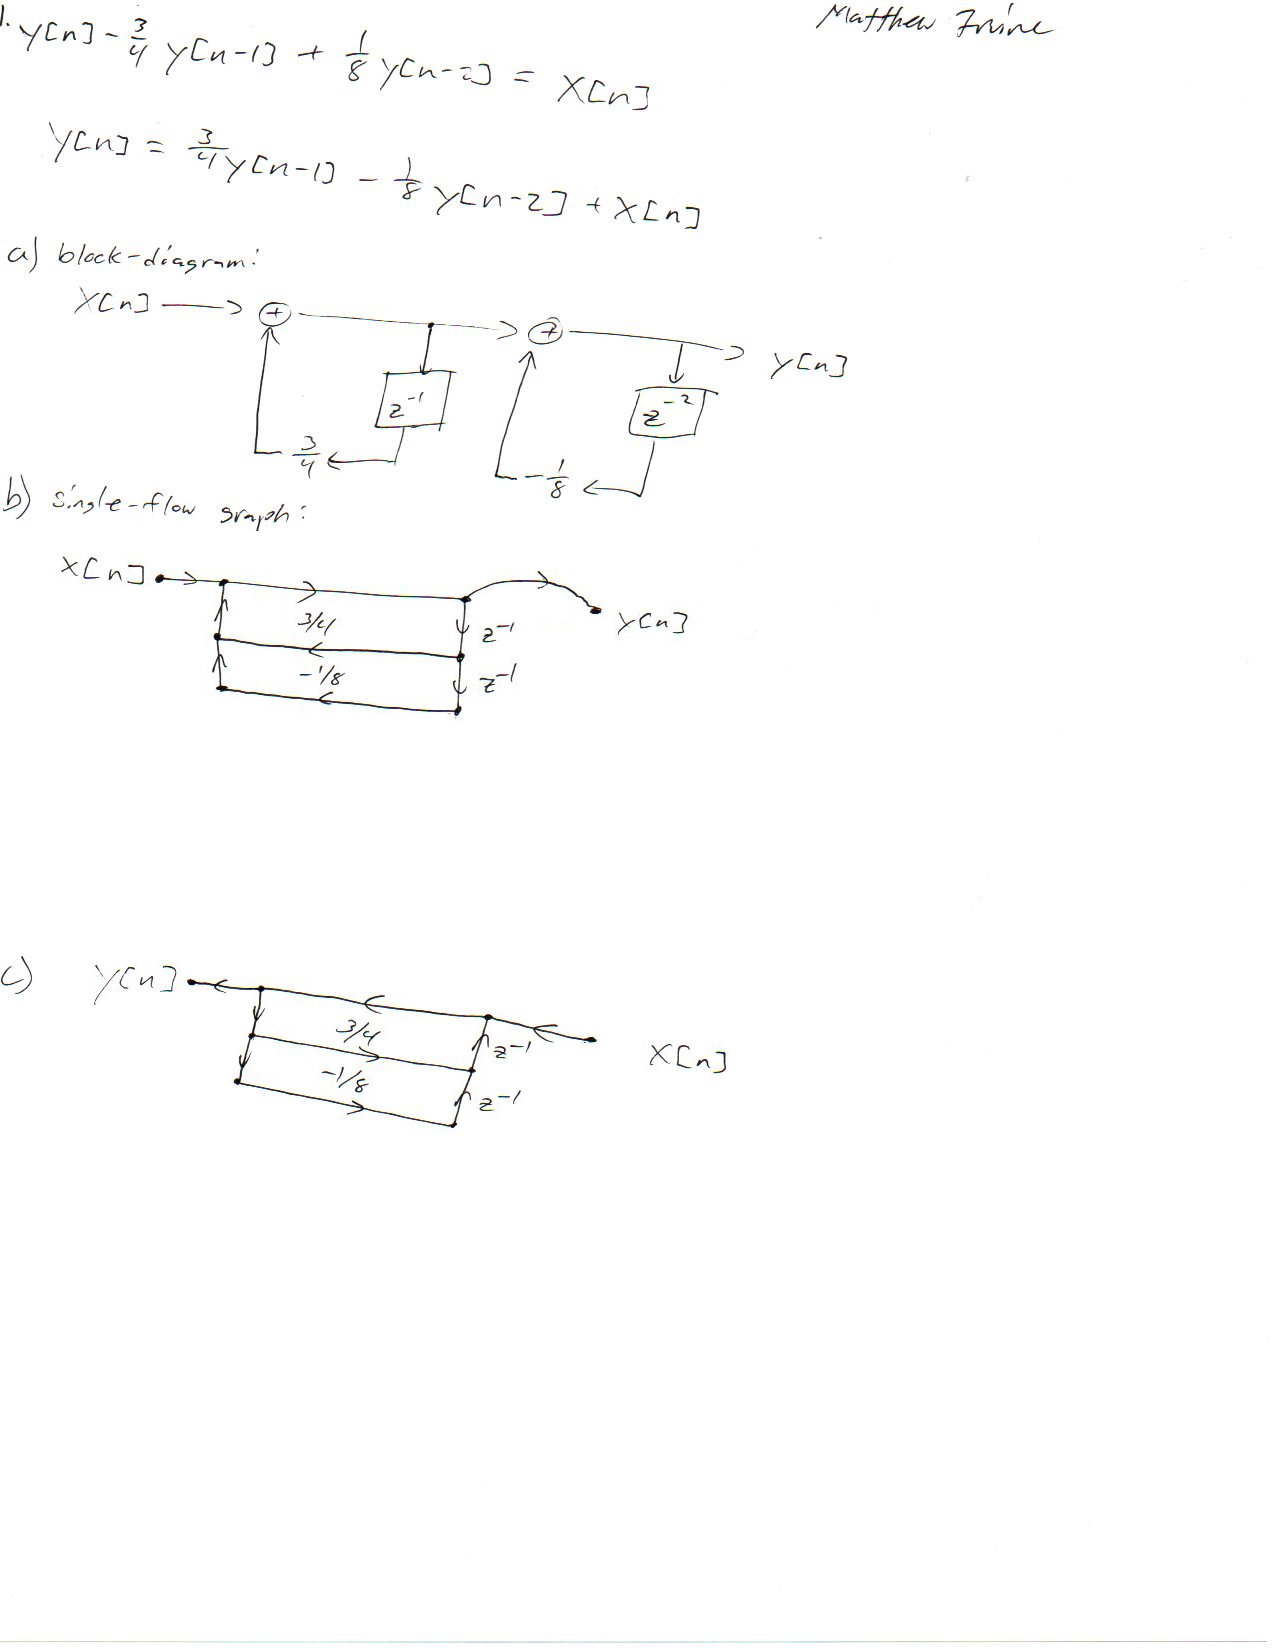 Matthew
1. y[n] - 3/4 y[n-1] + 1/8 y[n-2] = x[n]
y[n] = 3/4 y[n-1] - 1/8 y[n-2] + x[n]
a) block-diagram:
x[n] + + y[n]
z⁻¹ z⁻²
3/4 -1/8
b) single-flow graph:
x[n] y[n]
3/4 z⁻¹
-1/8 z⁻¹
c) y[n] x[n]
3/4 z⁻¹
-1/8 z⁻¹